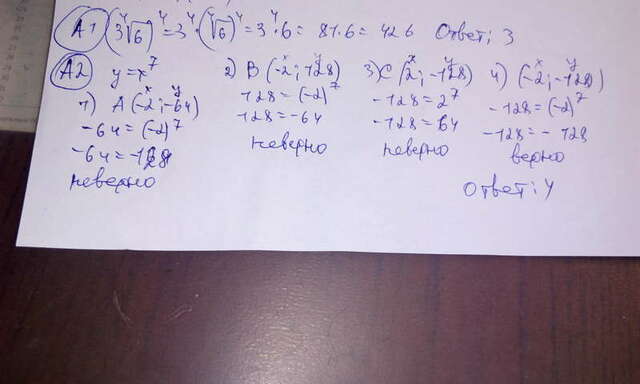 А1 (3∜6)⁴ = 3⁴ · (∜6)⁴ = 3⁴ · 6 = 81 · 6 = 426 Ответ: 3
А2 y = x⁷
1) A (-2; -64)
-64 = (-2)⁷
-64 = -128
неверно
2) B (-2; 128)
128 = (-2)⁷
128 = -64
неверно
3) C (2; -128)
-128 = 2⁷
-128 = 64
неверно
4) (-2; -128)
-128 = (-2)⁷
-128 = -128
верно
Ответ: 4